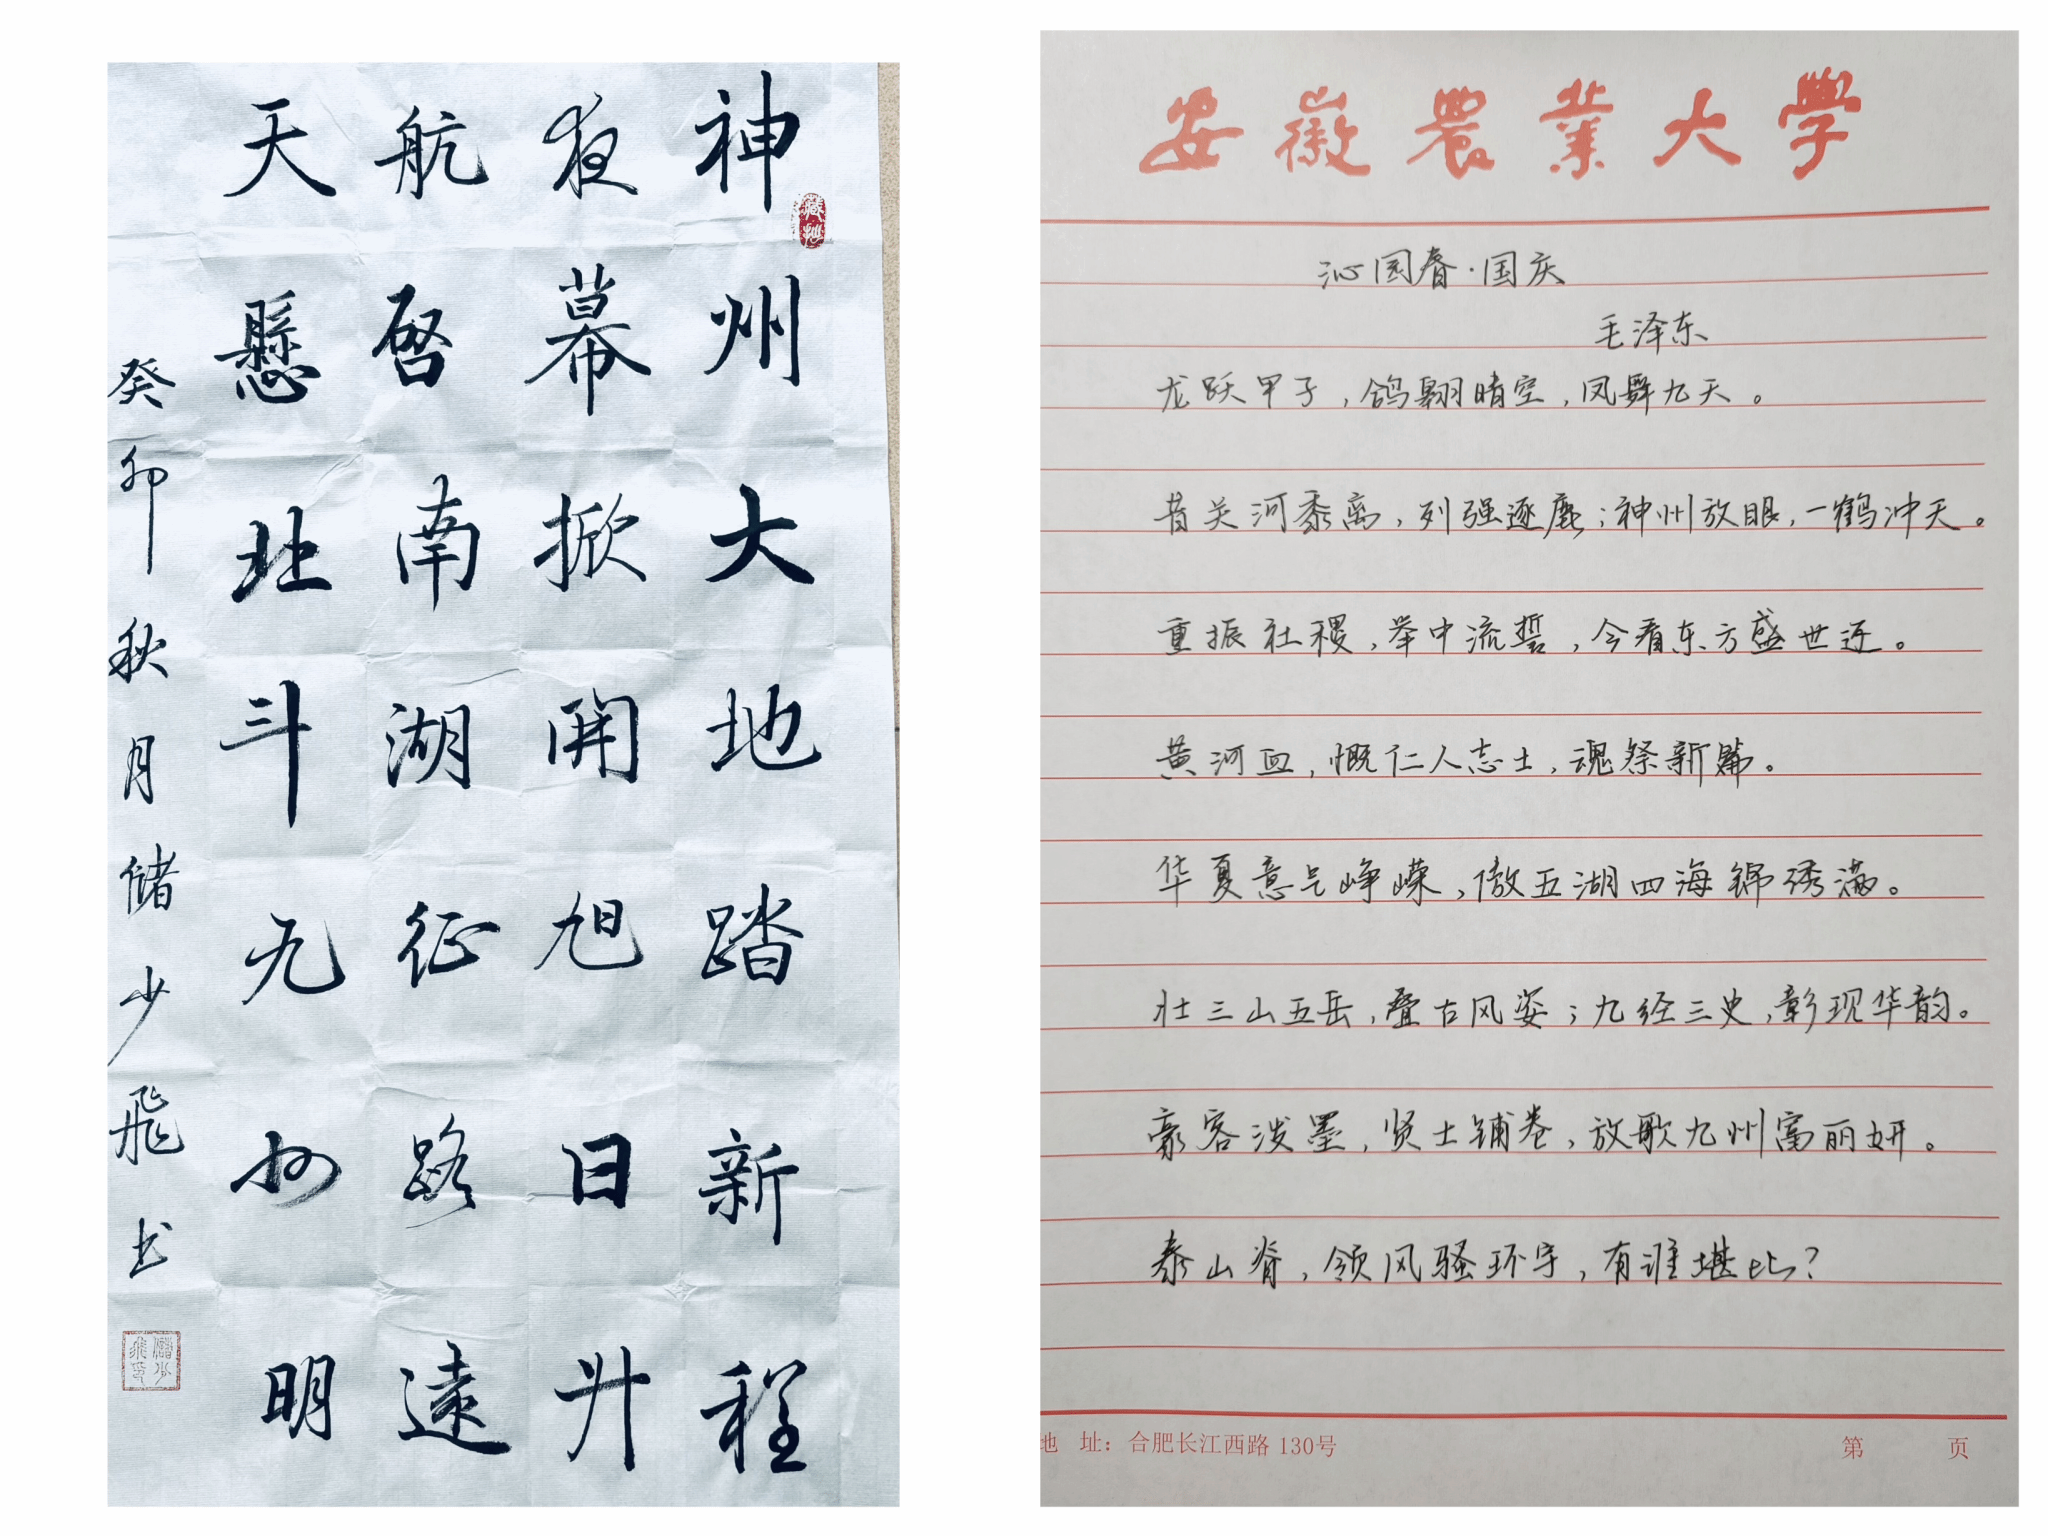 神州大地踏新程
夜幕掀開旭日升
航啓南湖征路遠
天懸北斗九州明
癸卯秋月储少飛书
藏拙
儲少飛印
安徽農業大學
沁园春·国庆
毛泽东
龙跃甲子，鸽翱晴空，凤舞九天。
昔关河黍离，列强逐鹿；神州放眼，一鹤冲天。
重振社稷，举中流誓，今看东方盛世还。
黄河血，慨仁人志士，魂祭新篇。
华夏意气峥嵘，傲五湖四海锦绣满。
壮三山五岳，叠古风姿；九经三史，彰现华韵。
豪客泼墨，贤士铺卷，放歌九州富丽妍。
泰山脊，领风骚环宇，有谁堪比？
地 址：合肥长江西路 130号
第 页